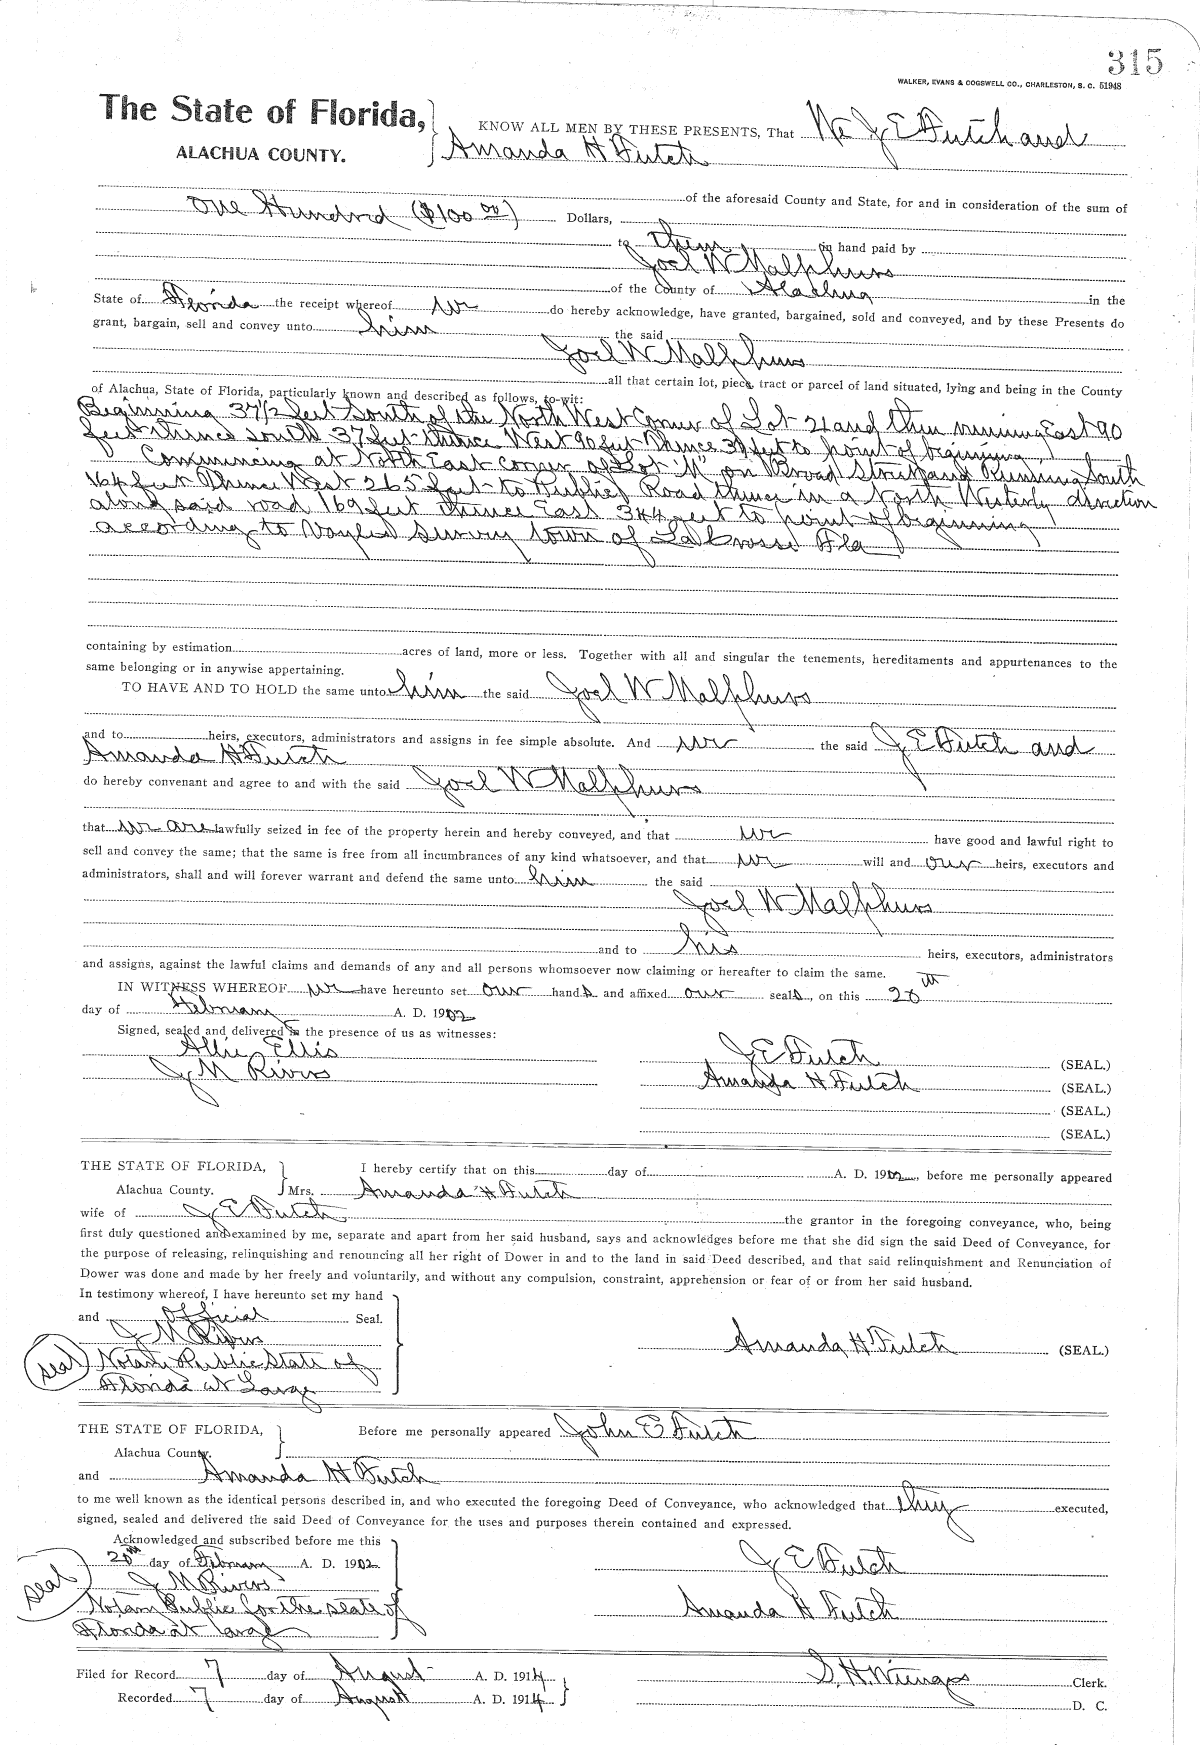 315
WALKER, EVANS & COGSWELL CO., CHARLESTON, S. C. 51948
The State of Florida,
ALACHUA COUNTY.
KNOW ALL MEN BY THESE PRESENTS, That We J E Futch and
Amanda H Futch
of the aforesaid County and State, for and in consideration of the sum of
One Hundred ($100 00) Dollars,
to them in hand paid by
Joel W Malphurs
of the County of Alachua in the
State of Florida the receipt whereof we do hereby acknowledge, have granted, bargained, sold and conveyed, and by these Presents do
grant, bargain, sell and convey unto him the said
Joel W Malphurs
all that certain lot, piece, tract or parcel of land situated, lying and being in the County
of Alachua, State of Florida, particularly known and described as follows, to-wit:
Beginning 37 1/2 feet South of the North West Corner of Lot 21 and then running East 90
feet thence south 37 feet thence West 90 feet thence 37 feet to point of beginning
Commencing at North East corner of Lot "M" on Broad Street and Running South
164 feet thence West 265 feet to Public Road thence in a North Westerly direction
along said road 169 feet thence East 344 feet to point of beginning
according to survey town of LaCrosse Fla
containing by estimation acres of land, more or less. Together with all and singular the tenements, hereditaments and appurtenances to the
same belonging or in anywise appertaining.
TO HAVE AND TO HOLD the same unto him the said Joel W Malphurs
and to heirs, executors, administrators and assigns in fee simple absolute. And we the said J E Futch and
Amanda H Futch
do hereby convenant and agree to and with the said Joel W Malphurs
that we are lawfully seized in fee of the property herein and hereby conveyed, and that we have good and lawful right to
sell and convey the same; that the same is free from all incumbrances of any kind whatsoever, and that we will and our heirs, executors and
administrators, shall and will forever warrant and defend the same unto him the said
Joel W Malphurs
and to his heirs, executors, administrators
and assigns, against the lawful claims and demands of any and all persons whomsoever now claiming or hereafter to claim the same.
IN WITNESS WHEREOF we have hereunto set our hands and affixed our seals, on this 20th
day of February A. D. 1902
Signed, sealed and delivered in the presence of us as witnesses:
Allie Ellis
J M Rivers
J E Futch (SEAL.)
Amanda H Futch (SEAL.)
(SEAL.)
(SEAL.)
THE STATE OF FLORIDA,
Alachua County.
I hereby certify that on this day of A. D. 1902, before me personally appeared
Mrs. Amanda H Futch
wife of J E Futch the grantor in the foregoing conveyance, who, being
first duly questioned and examined by me, separate and apart from her said husband, says and acknowledges before me that she did sign the said Deed of Conveyance, for
the purpose of releasing, relinquishing and renouncing all her right of Dower in and to the land in said Deed described, and that said relinquishment and Renunciation of
Dower was done and made by her freely and voluntarily, and without any compulsion, constraint, apprehension or fear of or from her said husband.
In testimony whereof, I have hereunto set my hand
and official Seal.
J M Rivers
seal Notary Public State of
Florida at Large
Amanda H Futch (SEAL.)
THE STATE OF FLORIDA,
Alachua County.
Before me personally appeared John E Futch
and Amanda H Futch
to me well known as the identical persons described in, and who executed the foregoing Deed of Conveyance, who acknowledged that they executed,
signed, sealed and delivered the said Deed of Conveyance for the uses and purposes therein contained and expressed.
Acknowledged and subscribed before me this
20th day of February A. D. 1902
seal J M Rivers
Notary Public for the state of
Florida at large
J E Futch
Amanda H Futch
Filed for Record 7 day of August A. D. 1914
Recorded 7 day of August A. D. 1914
S. H. Wienges Clerk.
D. C.